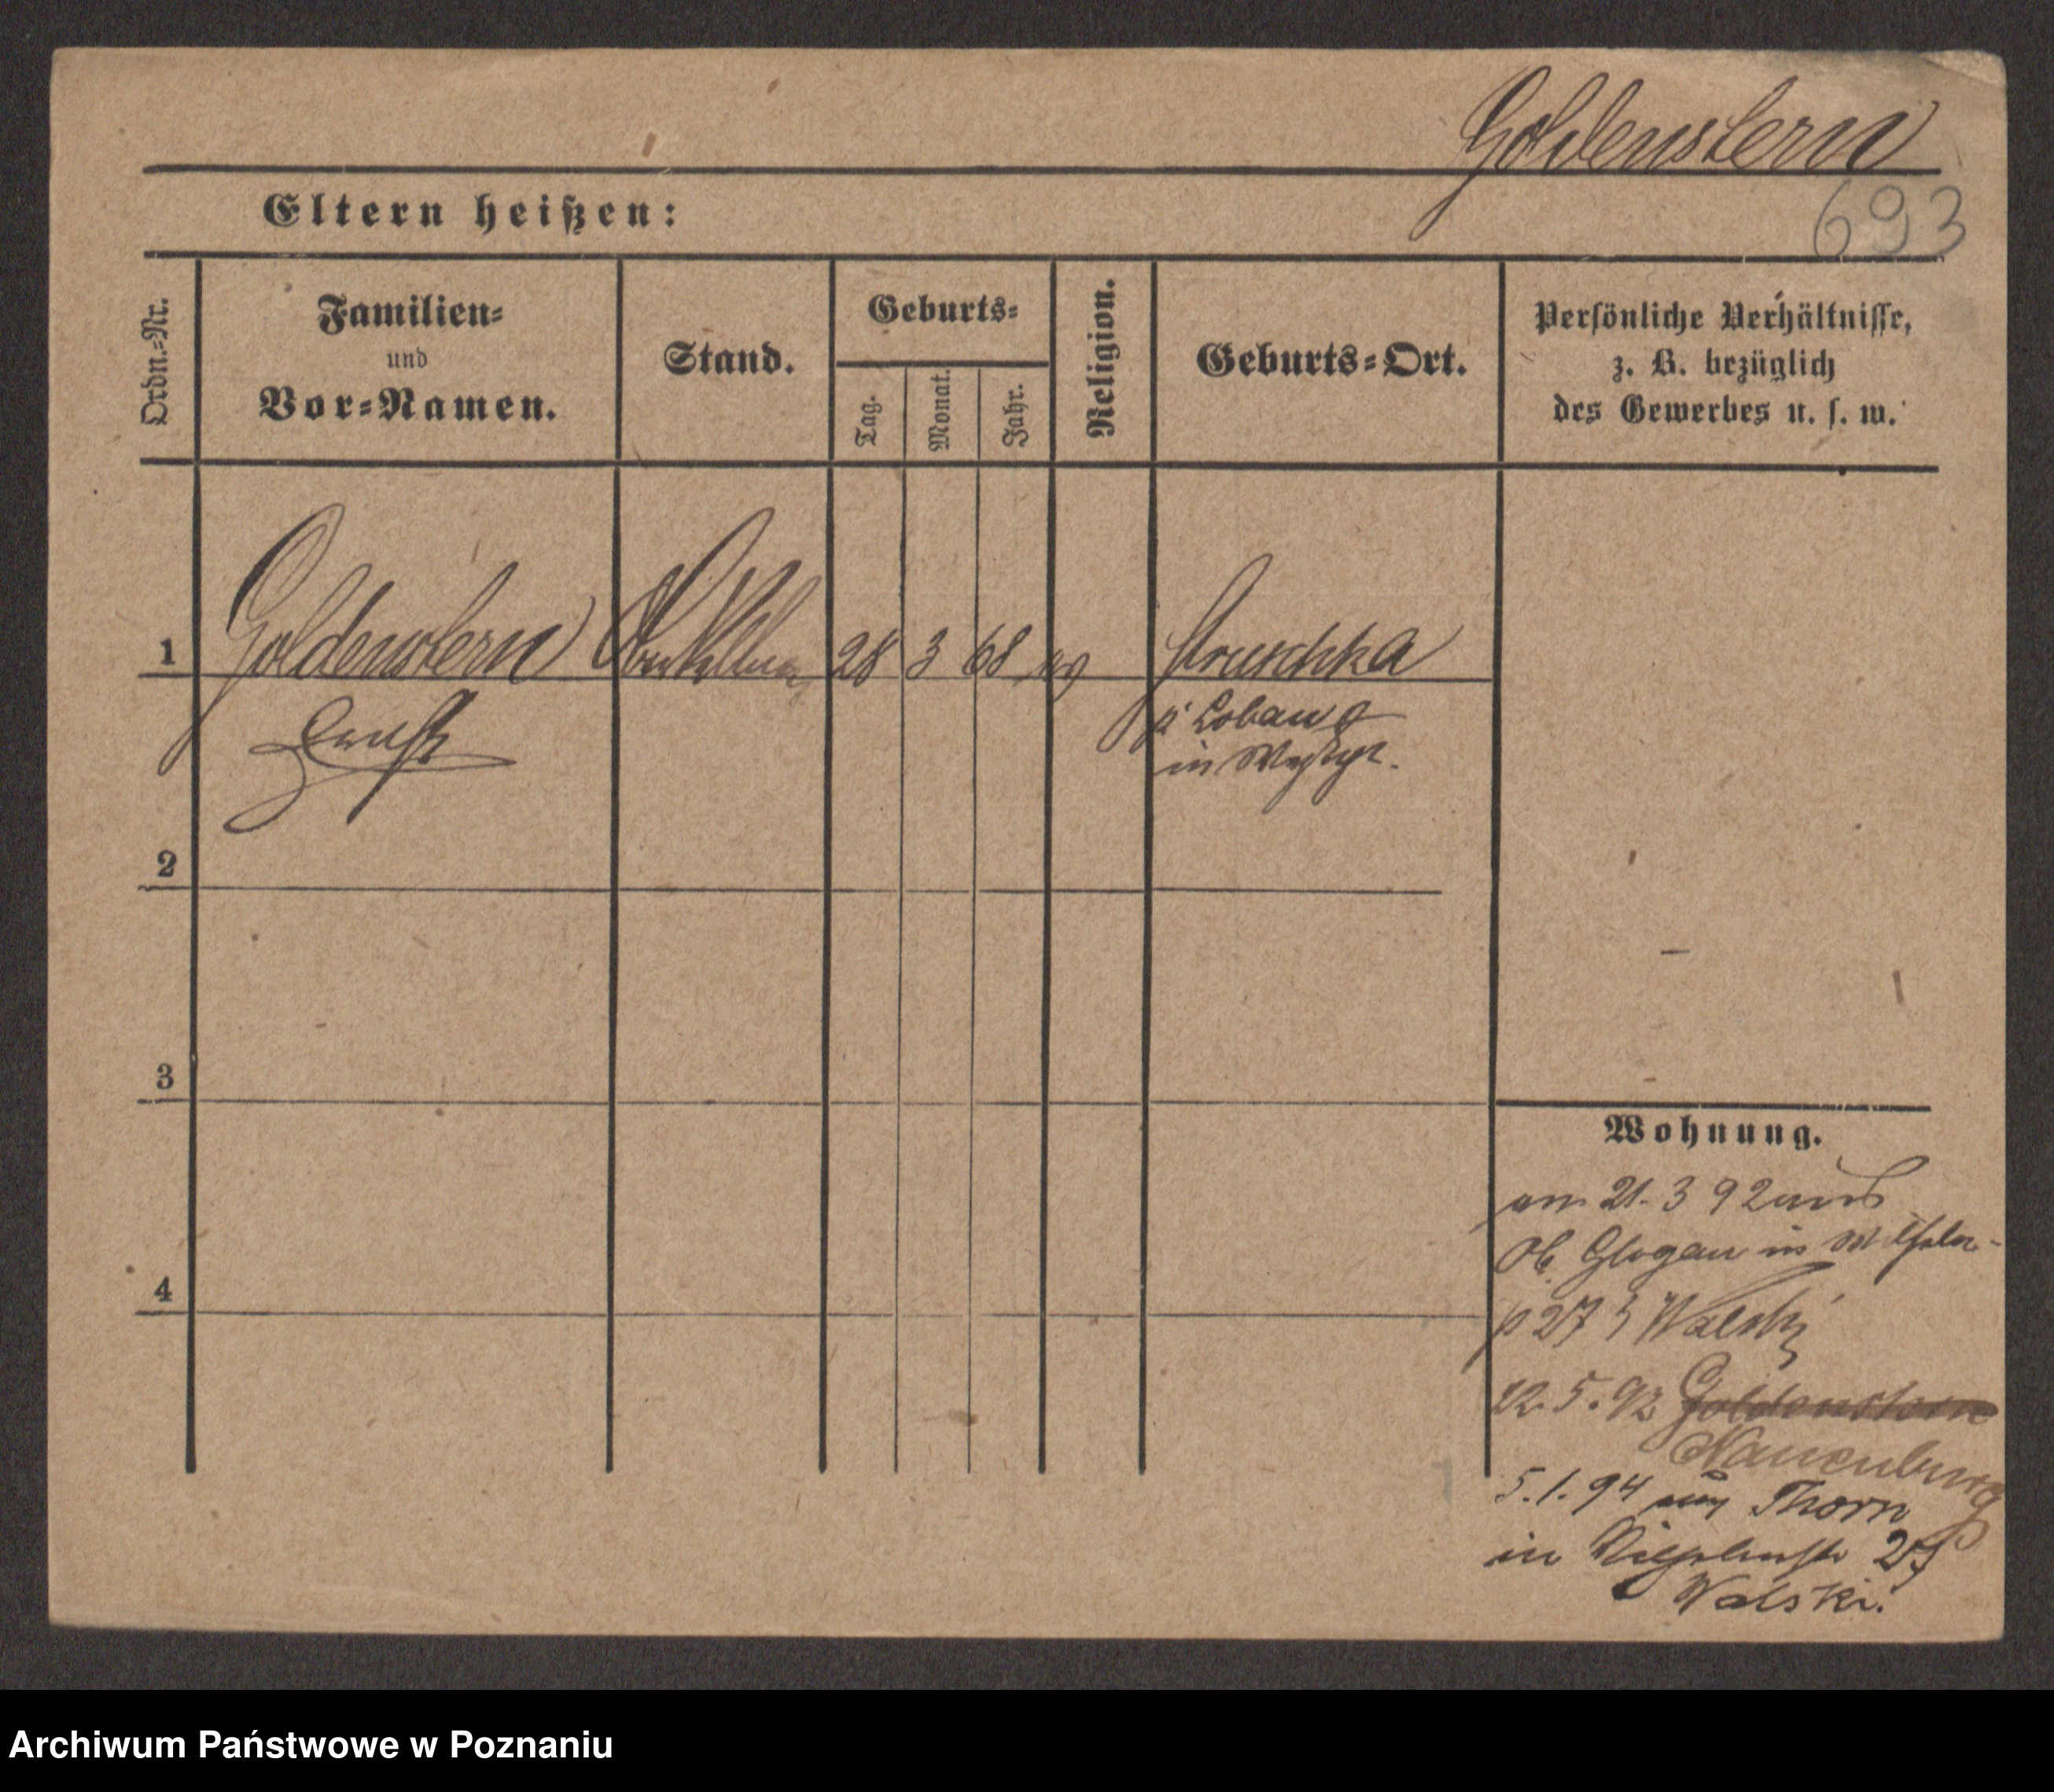 Goldenstern
693
Eltern heißen:
Ordn.=Nr.
Familien=
und
Vor=Namen.
Stand.
Geburts=
Tag.
Monat.
Jahr.
Religion.
Geburts=Ort.
Persönliche Verhältnisse,
z. B. bezüglich
des Gewerbes u. s. w.
1
Goldenstern
28
3
68
Ernst
Pruschka
Lobau
in Westpr.
2
3
4
Wohnung.
am 21. 3 92 aus
Ob. Glogau in
p 27 Walski
12. 5. 92 Goldenstern
Nauenburg
5. 1. 94 aus Thorn
in 27
Walski
Archiwum Państwowe w Poznaniu